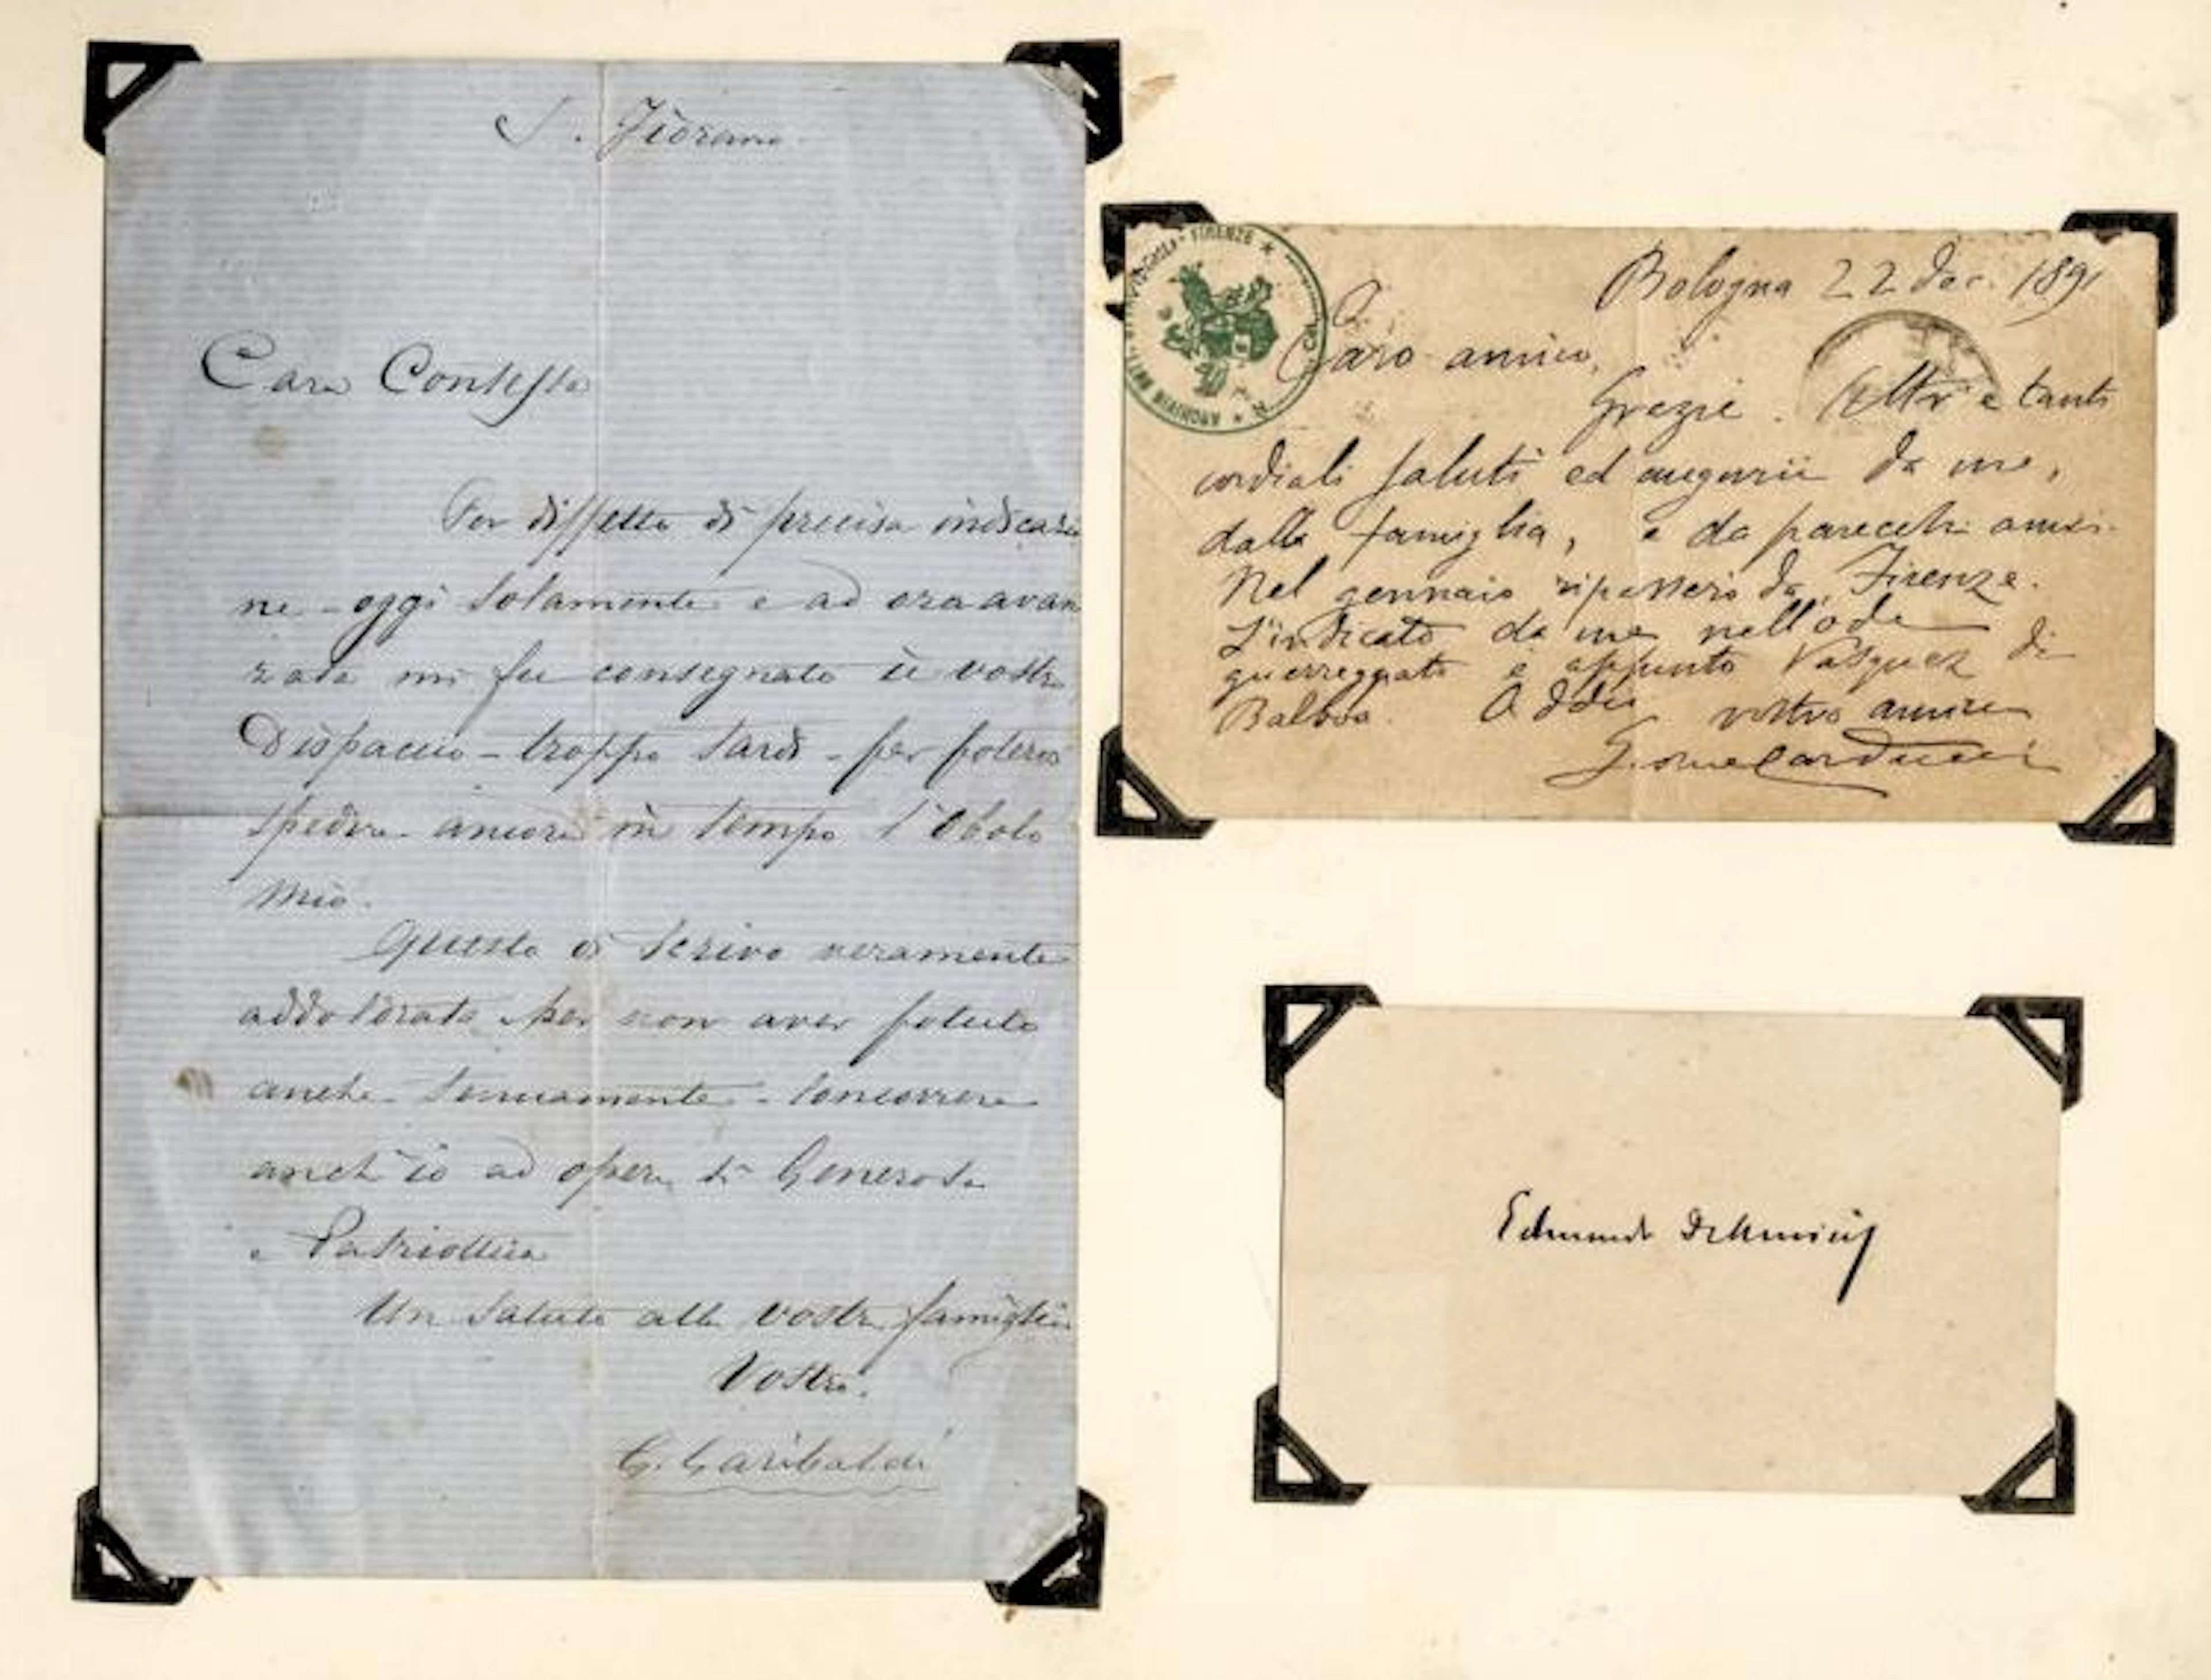 S. Fiorano
Cara Contessa
Per diffetto di precisa indicazio
ne - oggi solamente e ad ora avan
zata mi fu consegnato il vostro
Dispaccio - troppo tardi - per potervi
spedire ancora in tempo l'Obolo
mio.
Questo vi scrivo veramente
addolorato per non aver potuto
anche tenuamente - concorrere
anch'io ad opera sì Generosa
e Patriottica
Un saluto alla vostra famiglia
Vostro.
G. Garibaldi
FIRENZE
ARCHIVIO
Bologna 22 dec. 1891
Caro amico,
Grazie. Altri e tanti
cordiali saluti ed augurii da me,
dalla famiglia, e da parecchi amici.
Nel gennaio ripasserò da Firenze.
L'indicato da me nell'ode
guerreggiata è appunto Vasquez di
Balboa. Addio vostro amico
Giosue Carducci
Edmondo De Amicis